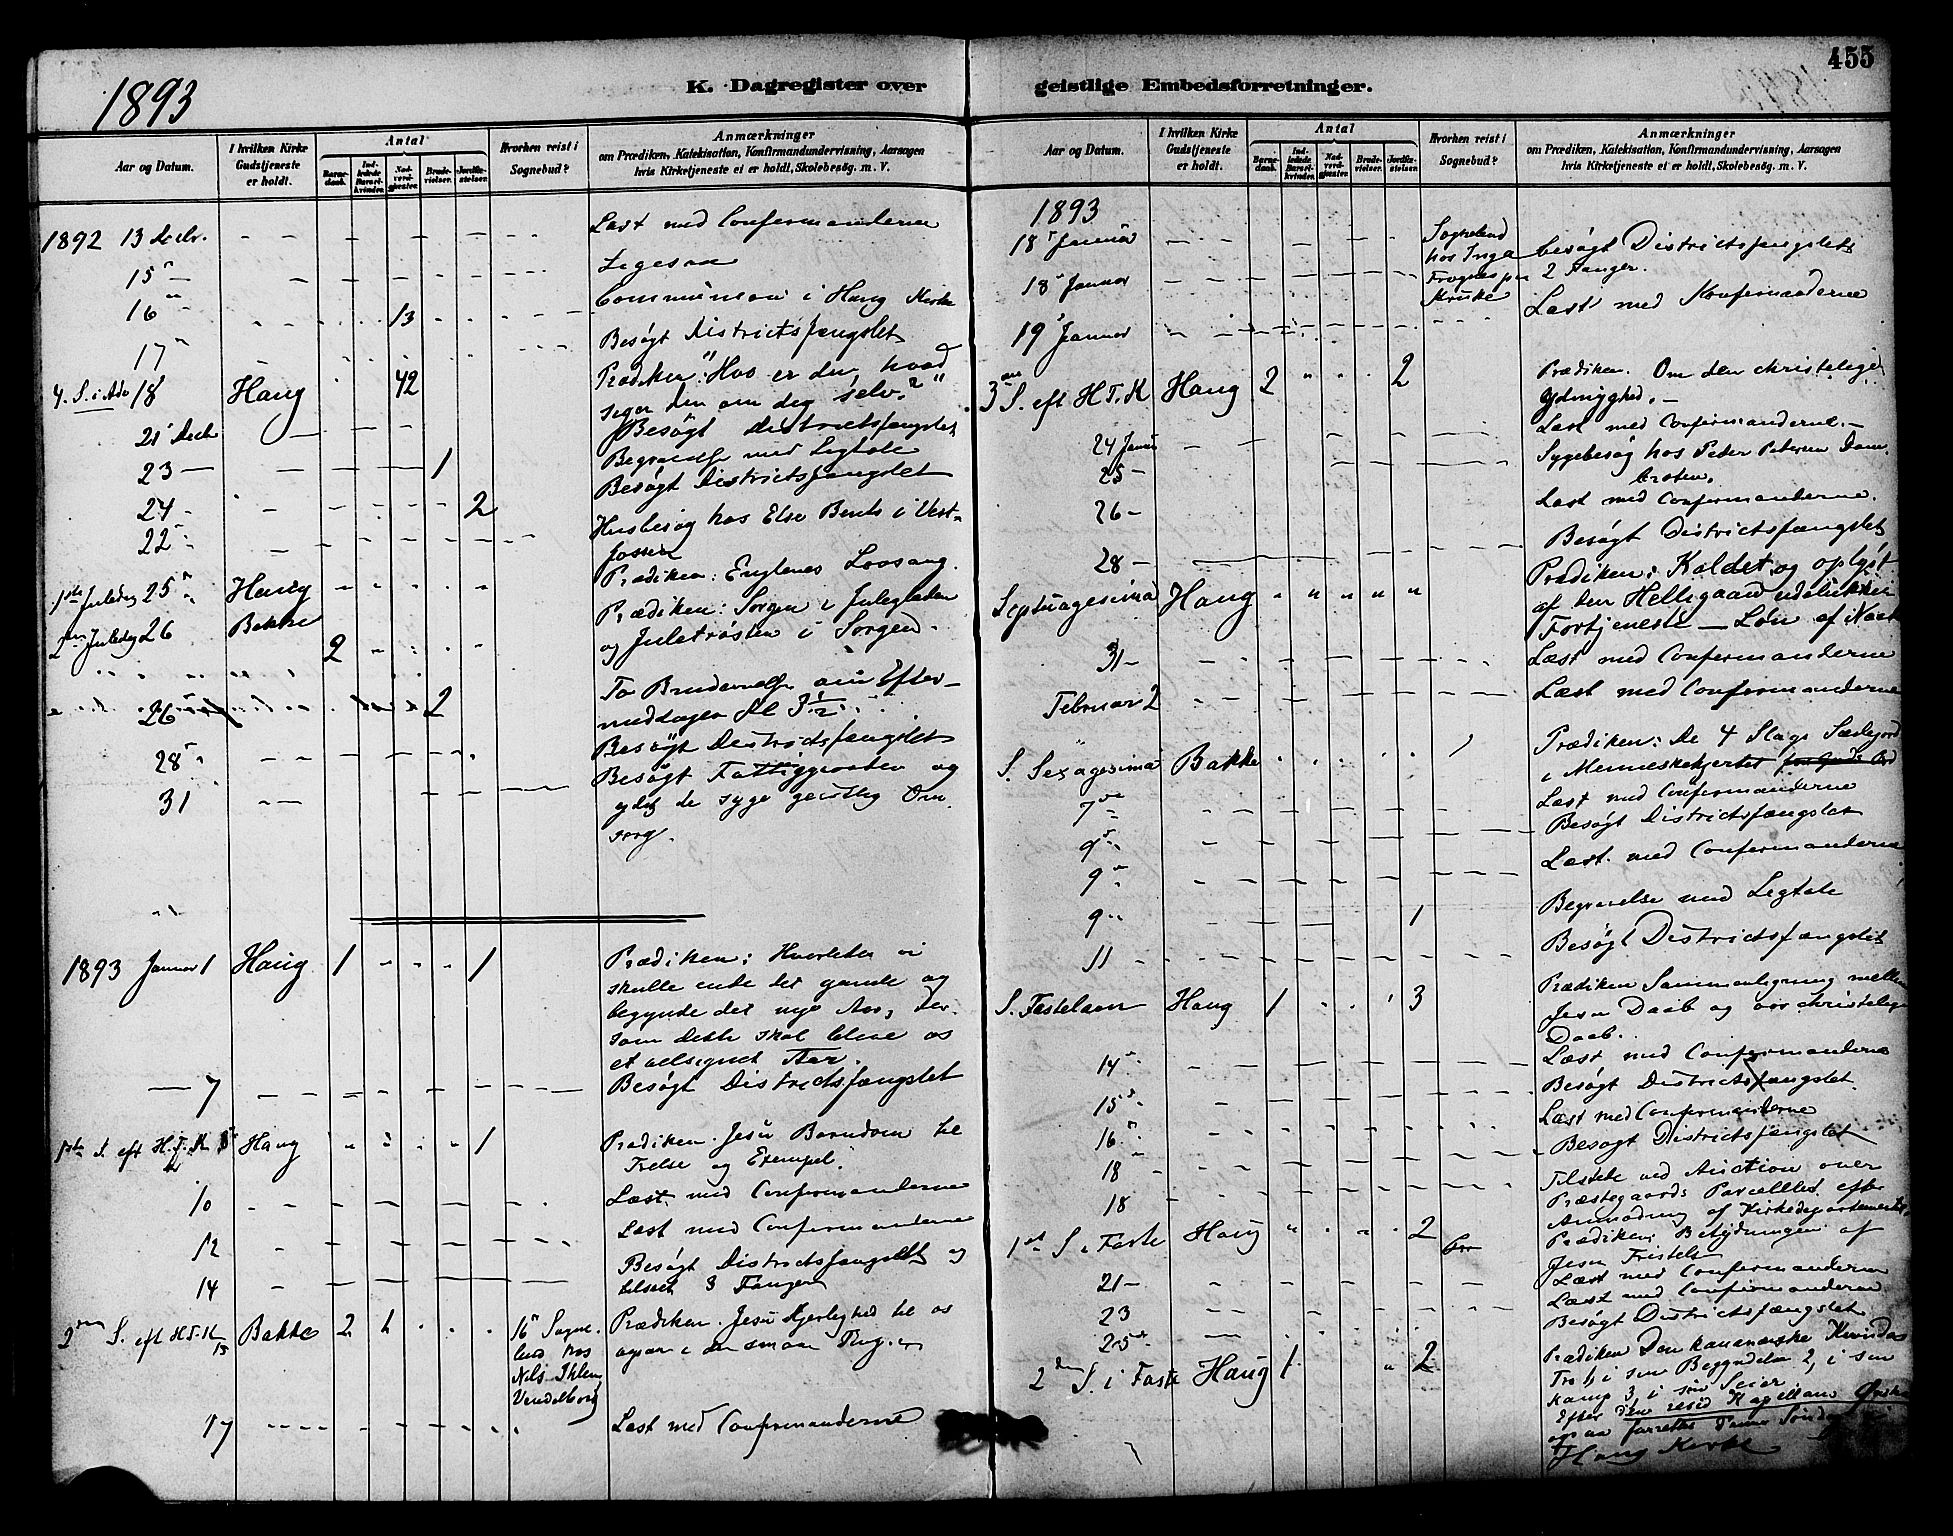 455
1893
K. Dagregister over geistlige Embedsforretninger.
Aar og Datum.
I hvilken Kirke Gudstjeneste er holdt.
Antal
Barnedaab.
Indledede Barselkvinder.
Nadverdgjester.
Brudevielser.
Jordfæstelser.
Hvorhen reist i Sognebud?
Anmærkninger
om Prædiken, Katekisation, Konfirmandundervisning, Aarsagen
hvis Kirketjeneste ei er holdt, Skolebesøg. m. V.
1892 13 Decbr. Læst med Confirmanderne
15
16 13 i Haug Kirke
17 Besøgt Districtsfængslet
4. S. i Adv 18 Haug 42 Prædiken: "Hvo er du, hvad
siger du om dig selv?"
21 Decbr Besøgt districtsfængslet
23 1 Begravelse med Ligtale
Besøgt Districtsfængslet
24 2
22 Husbesøg hos Else Bends i Vest-
fossen
1ste Juledag 25 Haug Prædiken: Englenes Lovsang.
2den Juledag 26 Bakke Prædiken: Sorgen i Juleglæden
2 og Juletrøsten i Sorgen.
26 2 To om Efter-
middagen Kl 3 1/2
28 Besøgt Districtsfængslet
31 Besøgt Fattiggaarden og
ydet de syge geistlig Om
sorg.
1893 Januar 1 Haug 1 1 Prædiken: Hvorledes vi
skulle ende det gamle og
begynde det nye Aar, der-
som dette skal blive os
et velsignet Aar.
7 Besøgt Districtsfængslet
1ste S. eft H. T. K 8 Haug 1 Prædiken. Jesu Barndom til
Trelse og Exempel.
10 Læst med Confirmanderne
12 Læst med Confirmanderne
14 Besøgt Districtsfængslet og
3 Fanger
2den S. eft H.T.K 15 Bakke 2 1 16 Sogne-
bud hos
Nils
Prædiken. Jesu Kjerlighed til os
ogsaa i de smaa Ting.
17 Læst med Confirmanderne
Aar og Datum.
I hvilken Kirke Gudstjeneste er holdt.
Antal
Barnedaab.
Indledede Barselkvinder.
Nadverdgjester.
Brudevielser.
Jordfæstelser.
Hvorhen reist i Sognebud?
Anmærkninger
om Prædiken, Katekisation, Konfirmandundervisning, Aarsagen
hvis Kirketjeneste ei er holdt, Skolebesøg. m. V.
1893
18 Januar Sognebud
hos Inga
besøgt Districtsfængslet
2 Fanger.
18 Januar
19 Januar Læst med Konfirmanderne
3 S. eft H T. K Haug 2 2 Prædiken. Om den christelige
Ydmyghed.
24 Januar Læst med Confirmanderne.
25 Sygebesøg hos Peder Petersen
26 Læst med Confirmanderne.
28 Besøgt Districtsfængslet
Septuagesima Haug Prædiken: Kaldet og oplyst
af den Helligaand udelukker
Fortjeneste — Løn af
31 Læst med Confirmanderne
Februar 2 Læst med Confirmanderne
S. Sexagesima Bakke Prædiken: De 4 Slags Sædejord
i Menneskehjertet for Guds Ord
7 Læst med Confirmanderne
9 Besøgt Districtsfængslet
9 Læst med Confirmanderne
9 1 Begravelse med Ligtale
11 Besøgt Districtsfængslet
S. Fastelavn Haug 1 3 Prædiken Sammenligning mellem
Jesu Daab og vor christelige
Daab.
14 Læst med Confirmanderne
15 Besøgt Districtsfængslet.
16 Læst med Confirmanderne
18 Besøgt Districtsfængslet
18 Tilstede ved Auction over
Præstegaards efter
Anmodning af Kirkedepartementet.
1ste S. i Faste Haug 2 Prædiken: Betydningen af
Jesu Fristelse
21 Læst med Confirmanderne
23 Læst med Confirmanderne
25 Besøgt Districtsfængslet
2den S. i Faste Haug 1 2 Prædiken Den kananæiske Kvindes
Tro 1, i sin Begyndelse 2, i sin
Kamp 3, i sin Seier.
Efter den resid Kapellans Ønske
ogsaa forrettet denne Søndag i
Haug Kirke